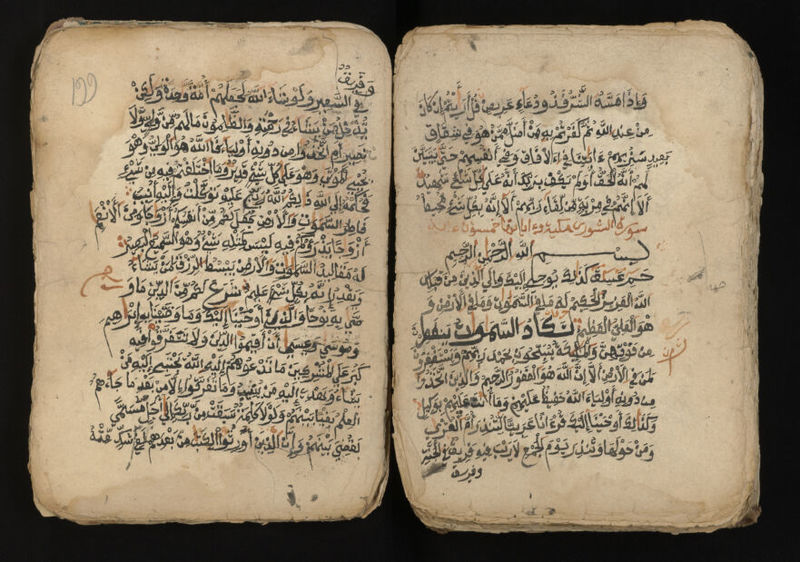 وإذا مسه الشر فذو دعاء عريض قل أريتم إن كان
من عند الله ثم كفرتم به من أضل ممن هو في شقاق
بعيد سنريهم ءايتنا في الافاق وفي أنفسهم حتى يتبين
لهم أنه الحق أولم يكف بربك أنه على كل شيء شهيد
ألا إنهم في مرية من لقاء ربهم ألا إنه بكل شيء محيط
سورة الشورى مكية وءاياتها خمسون ءاية
بسم الله الرحمن الرحيم
حم عسق كذلك يوحي إليك وإلى الذين من قبلك
الله العزيز الحكيم له ما في السموت وما في الارض و
هو العلي العظيم تكاد السموت يتفطرن
من فوقهن والملئكة يسبحون بحمد ربهم ويستغفرون
لمن في الارض ألا إن الله هو الغفور الرحيم والذين اتخذوا
من دونه أولياء الله حفيظ عليهم وما أنت عليهم بوكيل
وكذلك أوحينا إليك قرءانا عربيا لتنذر أم القرى
ومن حولها وتنذر يوم الجمع لا ريب فيه فريق في الجنة
وفريق
وفريق
في السعير ولو شاء الله لجعلهم أمة وحدة ولكن
يدخل من يشاء في رحمته والظلمون ما لهم من ولي ولا
نصير أم اتخذوا من دونه أولياء فالله هو الولي وهو
يحي الموتى وهو على كل شيء قدير وما اختلفتم فيه من شيء
فحكمه إلى الله ذلكم الله ربي عليه توكلت وإليه أنيب
فاطر السموت والارض جعل لكم من أنفسكم أزوجا ومن الأنعم
أزوجا يذرؤكم فيه ليس كمثله شيء وهو السميع البصير
له مقاليد السموت والارض يبسط الرزق لمن يشاء
ويقدر إنه بكل شيء عليم شرع لكم من الدين ما و
صى به نوحا والذي أوحينا إليك وما وصينا به إبراهيم
وموسى وعيسى أن أقيموا الدين ولا تتفرقوا فيه
كبر على المشركين ما تدعوهم إليه الله يجتبي إليه من
يشاء ويهدي إليه من ينيب وما تفرقوا إلا من بعد ما جاءهم
العلم بغيا بينهم ولولا كلمة سبقت من ربك إلى أجل مسمى
لقضي بينهم وإن الذين أورثوا الكتب من بعدهم لفي شك منه